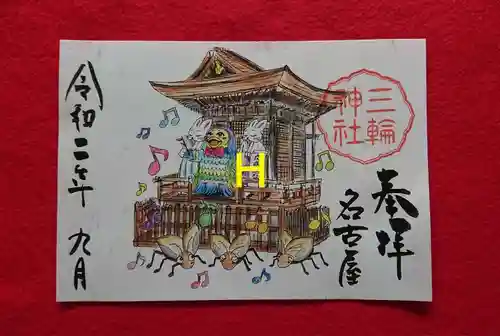 奉拝
名古屋
三輪
神社
H
令和二年 九月